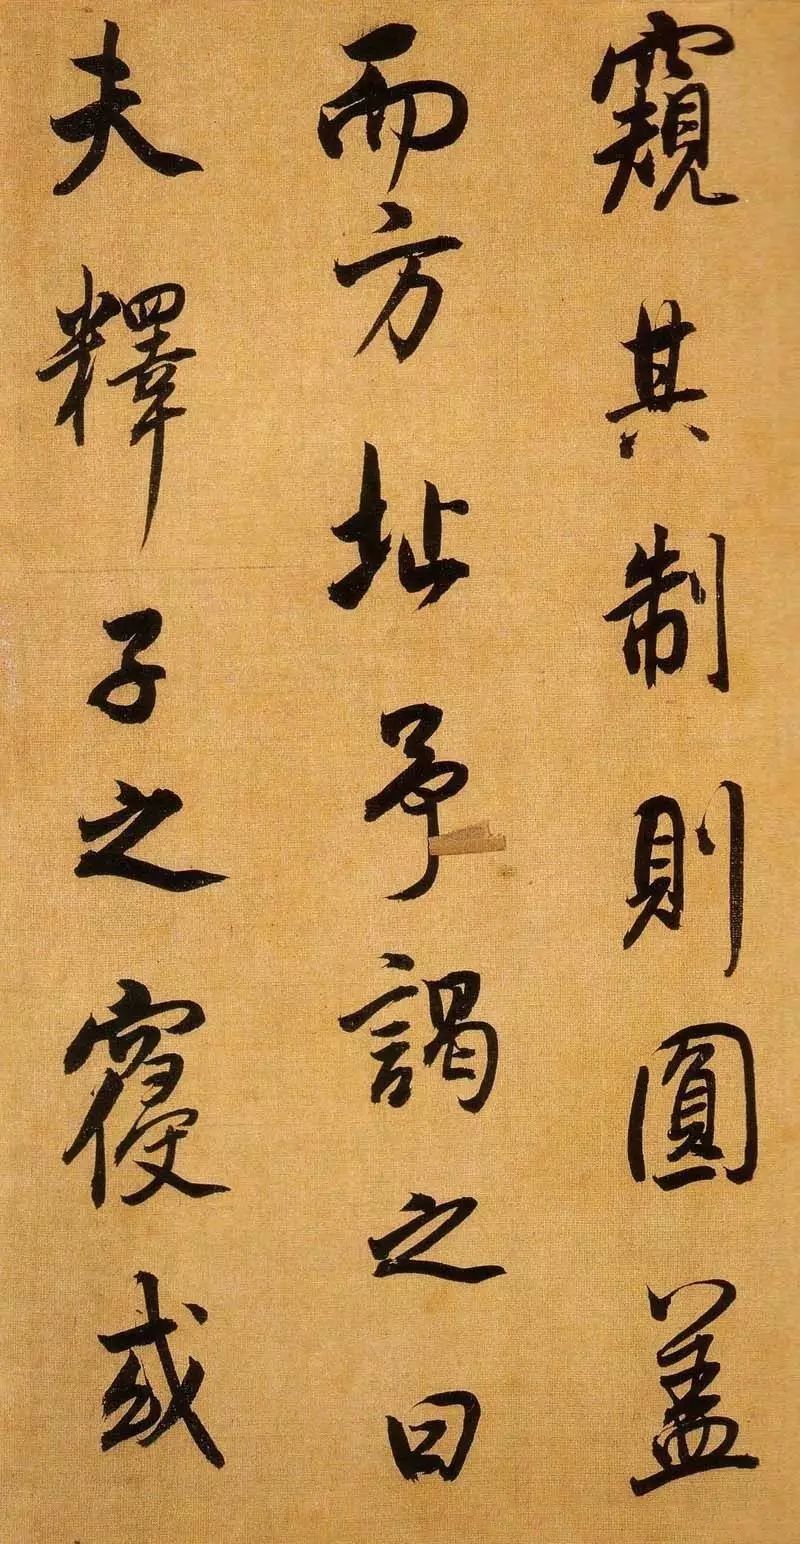 窺其制則圓蓋
而方址予謁之曰
夫釋子之或